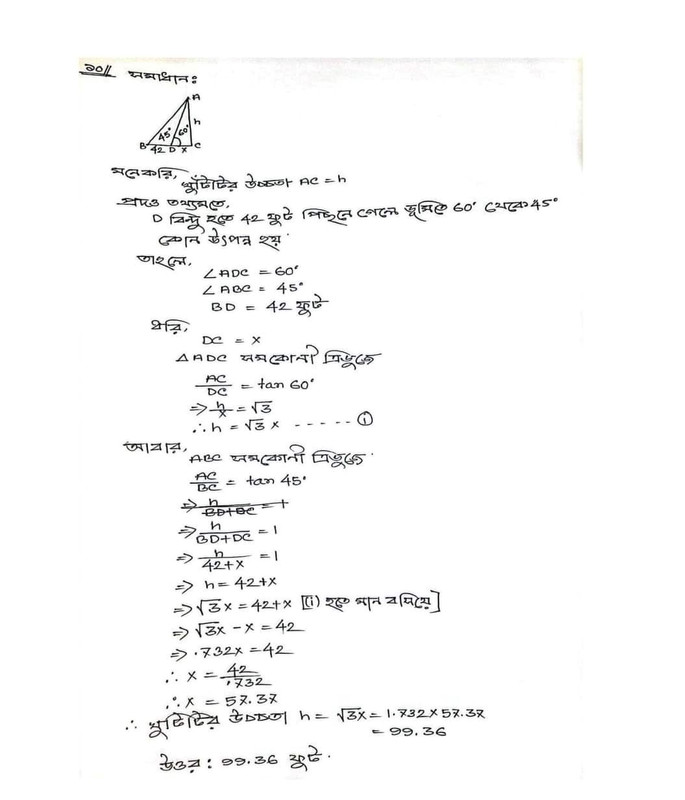 ১০// সমাধান:
A
h
45° 60°
B 42 D x C
মনেকরি, খুঁটিটির উচ্চতা AC = h
প্রদত্ত তথ্যমতে,
D বিন্দু হতে 42 ফুট পিছনে গেলে ভূমিতে 60° থেকে 45°
কোন উৎপন্ন হয়
তাহলে,
∠ADC = 60°
∠ABC = 45°
BD = 42 ফুট
ধরি,
DC = x
△ADC সমকোনী ত্রিভুজে
AC/DC = tan 60°
⇒ h/x = √3
∴ h = √3 x ------ (i)
আবার, ABC সমকোনী ত্রিভুজে
AC/BC = tan 45°
⇒ h/(BD+DC) = 1
⇒ h/(42+x) = 1
⇒ h = 42+x
⇒ √3 x = 42+x [(i) হতে মান বসিয়ে]
⇒ √3x - x = 42
⇒ .732x = 42
∴ x = 42/.732
∴ x = 57.37
∴ খুটিটির উচ্চতা h = √3x = 1.732 x 57.37
= 99.36
উত্তর: 99.36 ফুট.